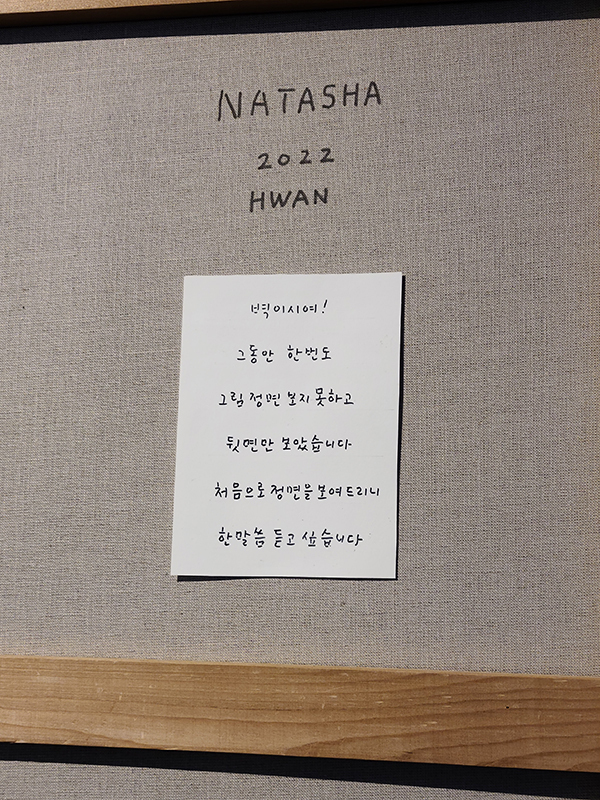 NATASHA
2022
HWAN
벽이시여!
그동안 한번도
그림 정면 보지 못하고
뒷면만 보았습니다
처음으로 정면을 보여드리니
한말씀 듣고 싶습니다